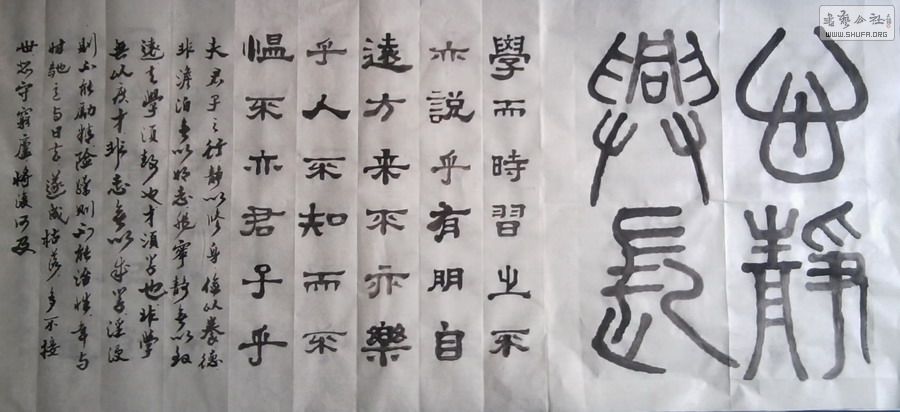 静
興長
學而時習之不
亦説乎有朋自
遠方来不亦樂
乎人不知而不
愠不亦君子乎
夫君子之行静以修身儉以養德
非澹泊無以明志非寧静無以致
遠夫學須静也才須學也非學
無以廣才非志無以成學淫慢
則不能勵精險躁則不能治性年与
时馳意与日去遂成枯落多不接
世悲守窮廬將復何及
書藝公社
WWW.SHUFA.ORG